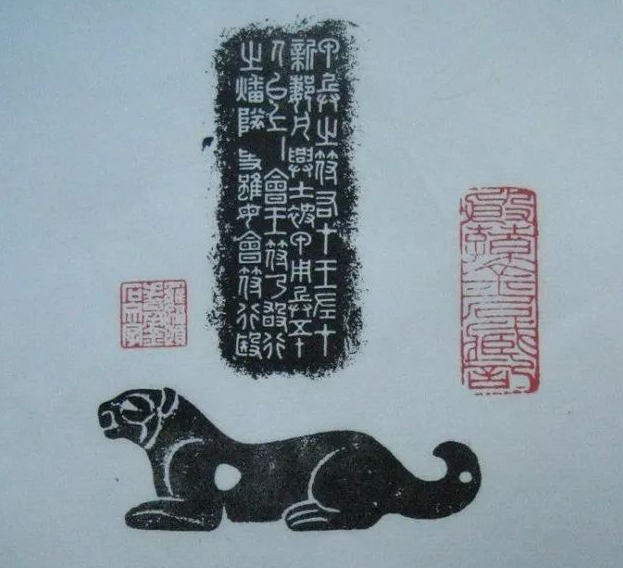 甲兵之符右才王左才
新郪凡興士被甲用兵五十
人以上必會王符乃敢行
之燔隊事雖毋會符行殹